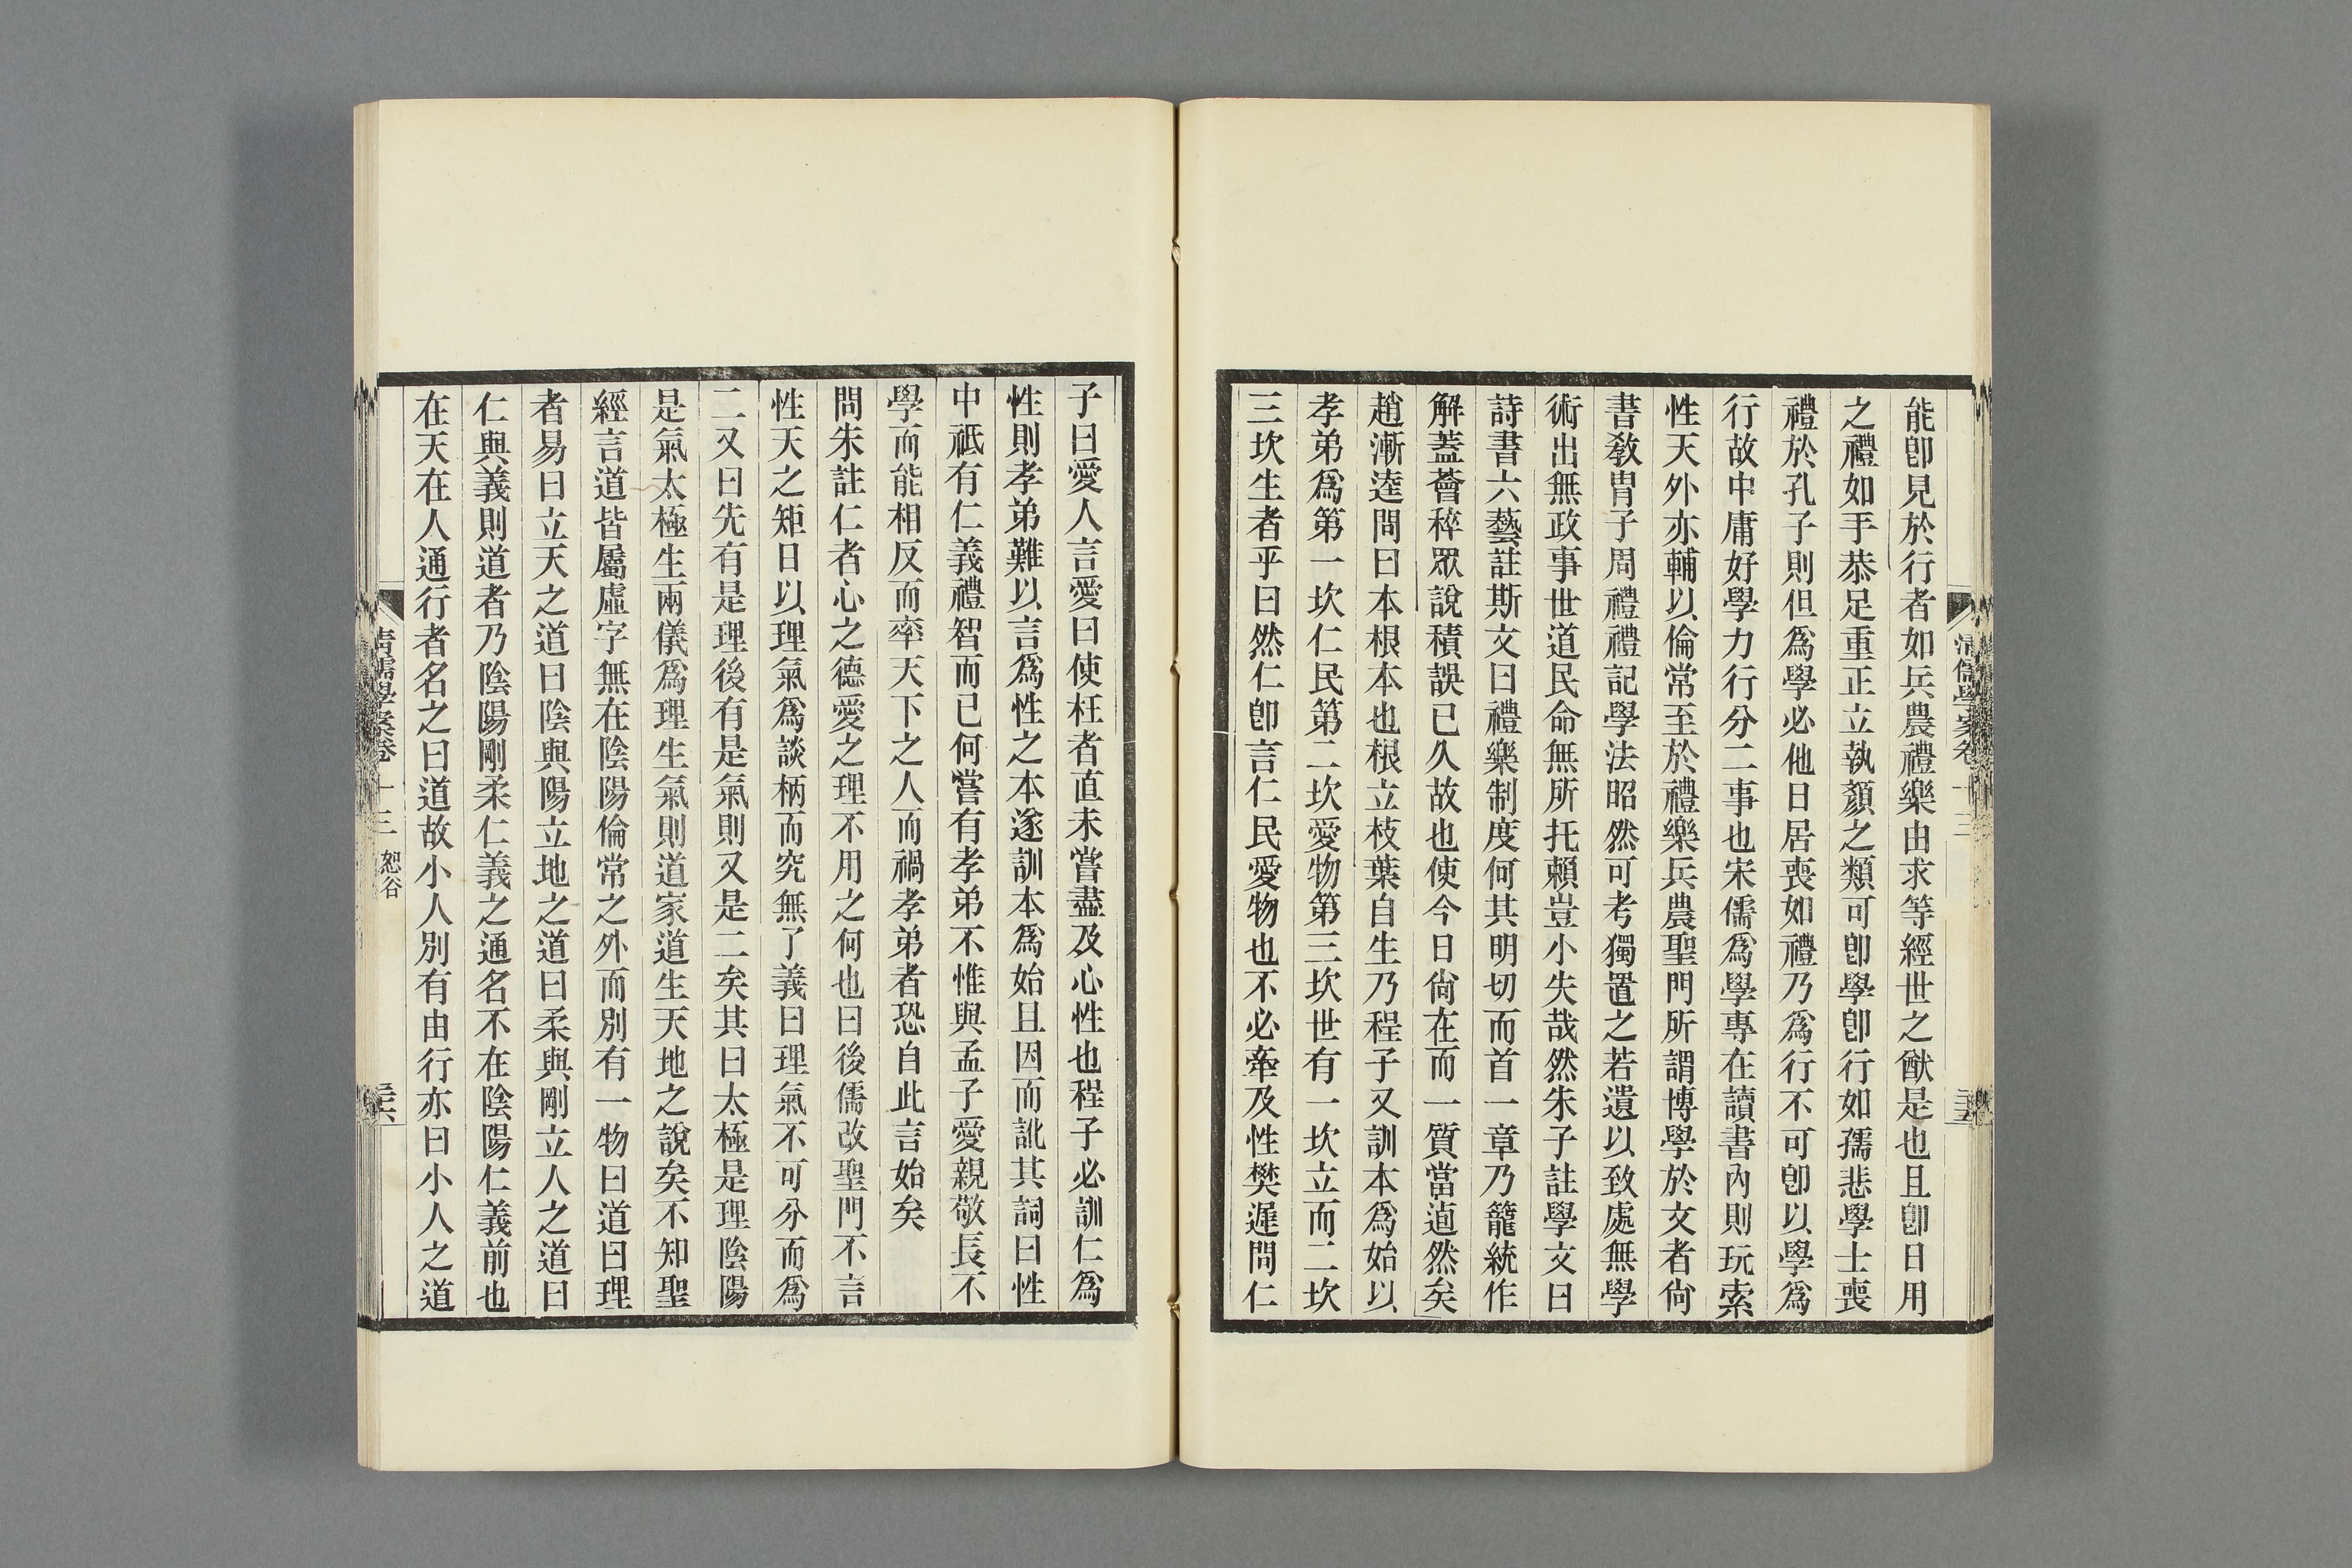 能卽見於行者如兵農禮樂由求等經世之猷是也且卽日用
之禮如手恭足重正立執顏之類可卽學卽行如孺悲學士喪
禮於孔子則但爲學必他日居喪如禮乃爲行不可卽以學爲
行故中庸好學力行分二事也宋儒爲學專在讀書內則玩索
性天外亦輔以倫常至於禮樂兵農聖門所謂博學於文者尙
書敎胄子周禮禮記學法昭然可考獨置之若遺以致處無學
術出無政事世道民命無所托賴豈小失哉然朱子註學文曰
詩書六藝註斯文曰禮樂制度何其明切而首一章乃籠統作
解蓋薈稡眾說積誤已久故也使今日尙在而一質當逌然矣
趙漸逵問曰本根本也根立枝葉自生乃程子又訓本爲始以
孝弟爲第一坎仁民第二坎愛物第三坎世有一坎立而二坎
三坎生者乎曰然仁卽言仁民愛物也不必牽及性樊遲問仁
子曰愛人言愛曰使枉者直未嘗盡及心性也程子必訓仁爲
性則孝弟難以言爲性之本遂訓本爲始且因而訛其詞曰性
中祇有仁義禮智而已何嘗有孝弟不惟與孟子愛親敬長不
學而能相反而率天下之人而禍孝弟者恐自此言始矣
問朱註仁者心之德愛之理不用之何也曰後儒改聖門不言
性天之矩日以理氣爲談柄而究無了義曰理氣不可分而爲
二又曰先有是理後有是氣則又是二矣其曰太極是理陰陽
是氣太極生兩儀爲理生氣則道家道生天地之說矣不知聖
經言道皆屬虛字無在陰陽倫常之外而別有一物曰道曰理
者易曰立天之道曰陰與陽立地之道曰柔與剛立人之道曰
仁與義則道者乃陰陽剛柔仁義之通名不在陰陽仁義前也
在天在人通行者名之曰道故小人別有由行亦曰小人之道
清儒學案卷十三 恕谷